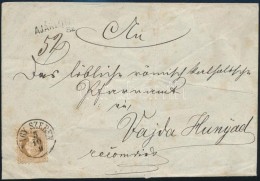 52
An
Das löbliche römisch katholische
Pfarramt
zu
Vajda Hunyad
recomdirt